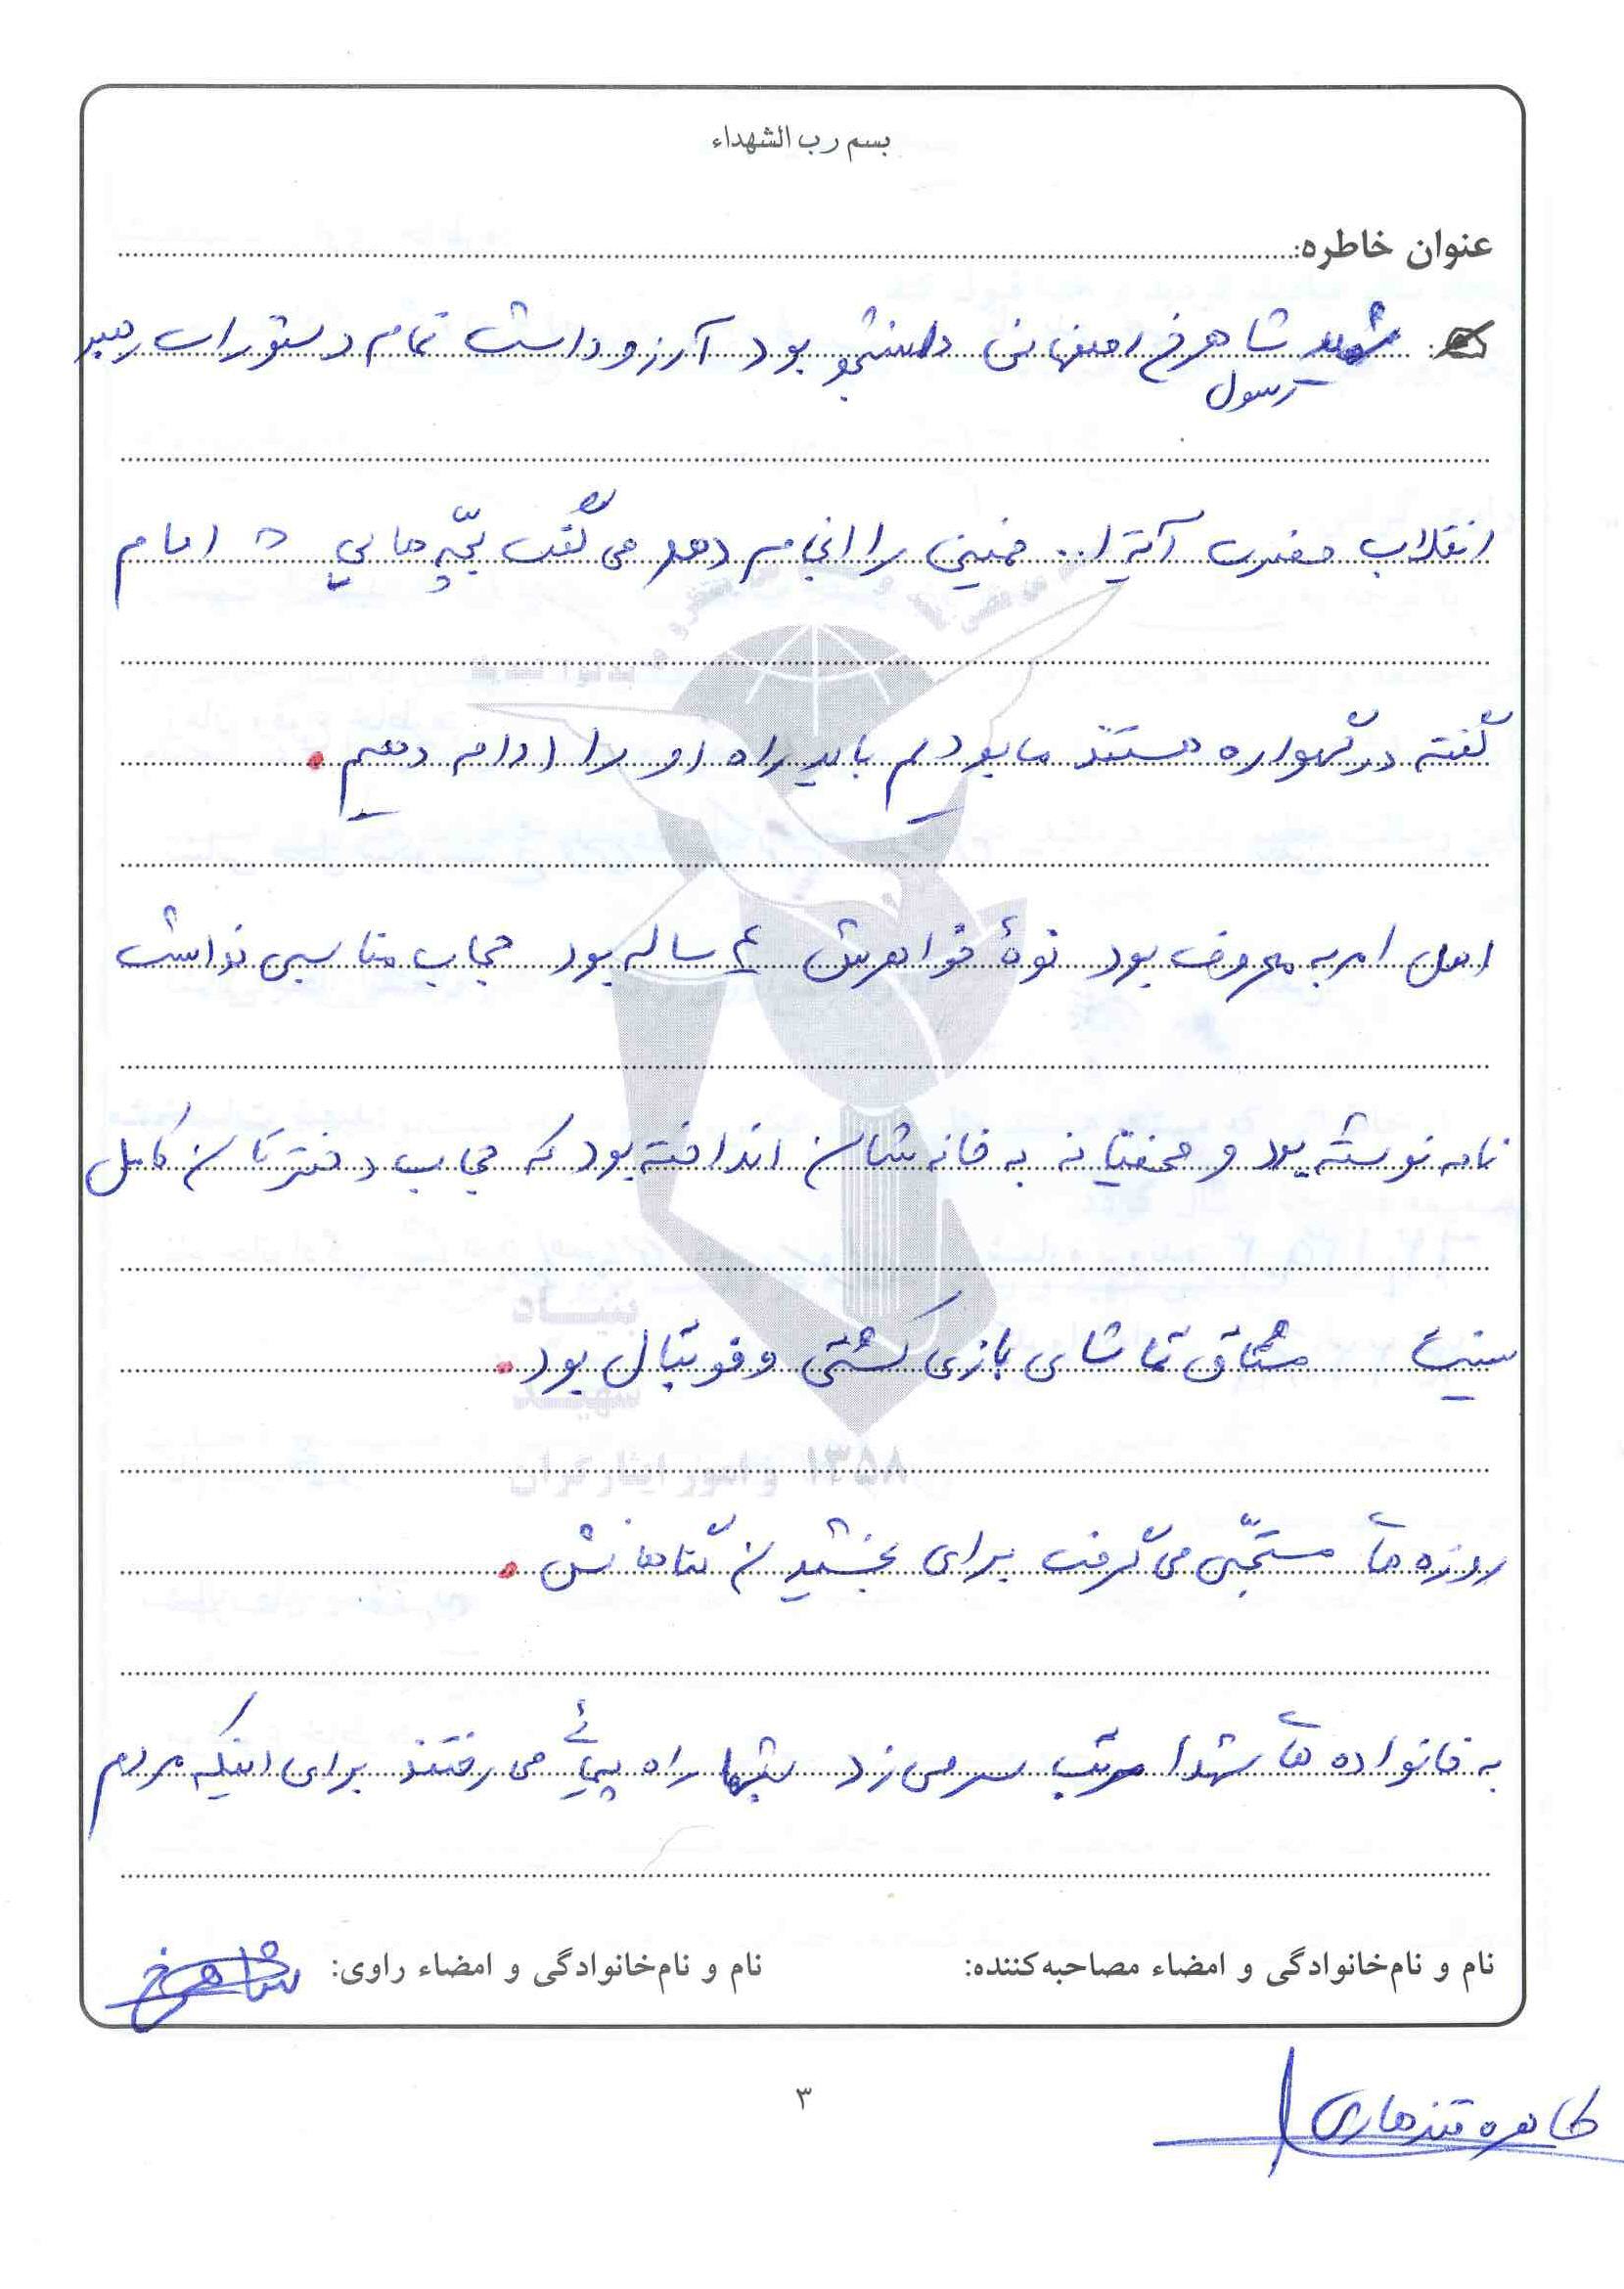 بسم رب الشهداء
عنوان خاطره:
شهید شاهرخ اصفهانی دانشجو بود آرزو داشت تمام دستورات رهبر
رسول
انقلاب حضرت آیة ا... خمینی را انجام دهد می گفت بچّه هایی که امام
گفته در گهواره هستند ما بودیم باید راه او را ادامه دهیم.
اهل امر به معروف بود نوۀ خواهرش ۴ ساله بود حجاب مناسبی نداشت
نامه نوشته بود و مخفیانه به خانه شان انداخته بود که حجاب دخترتان کامل
نیست مشتاق تماشای بازی کشتی و فوتبال بود.
روزه های مستحبّی می گرفت برای بخشیدن گناهانش.
به خانواده های شهدا مرتب سر می زد شبها راه پیمائی می رفتند برای اینکه مردم
نام و نام‌خانوادگی و امضاء مصاحبه‌کننده:
نام و نام‌خانوادگی و امضاء راوی: شاهرخ
طاهره قندهاری
۳
بنیاد
شهید
و امور ایثارگران ۱۳۵۸